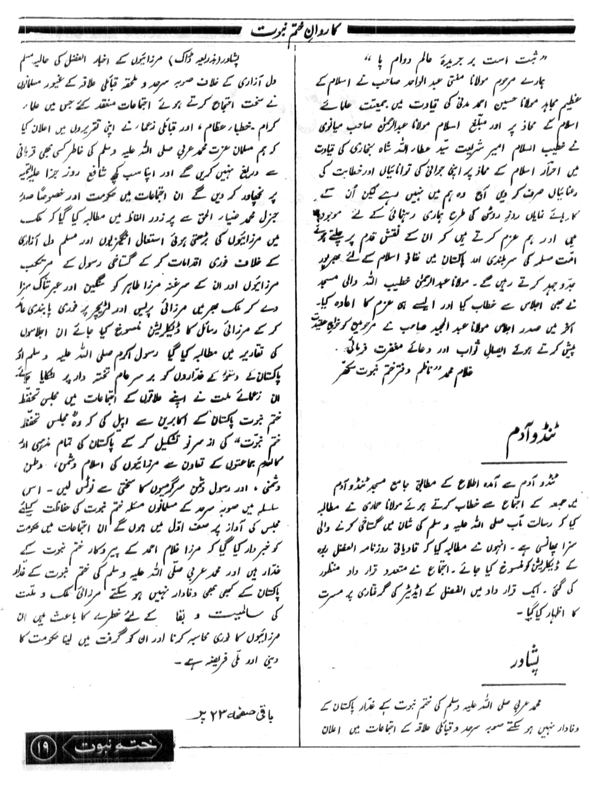 کاروانِ ختم نبوت
"ثبت است بر جریدۂ عالم دوام پا"
ہمارے مرحوم مولانا مفتی عبد الواحد صاحب نے اسلام کے
عظیم مجاہد مولانا حسین احمد مدنی کی قیادت میں جمیعت علمائے
اسلام کے محاذ پر اور مبلغ اسلام مولانا عبدالرحمٰن صاحب میانوی
نے خطیب اسلام امیر شریعت سید عطار اللہ شاہ بخاری کی قیادت
میں احرار اسلام کے محاذ پر اپنی جوانی کی توانائیاں اور خطابت کی
رعنائیاں صرف کر دی آج وہ ہم میں نہیں ہے لیکن اُن کے
کارہائے نمایاں روزِ روشن کی طرح ہماری رہنمائی کے لئے موجود
ہیں اور ہم عزم کرتے ہیں کہ ان کے نقش قدم پر چلتے ہوئے
امت مسلمہ کی سربلندی اور پاکستان میں نفاذِ اسلام کے لئے بھرپور
جدوجہد کرتے رہیں گے۔ مولانا عبد الرحمٰن خطیب اللہ والی مسجد
نے بھی اجلاس سے خطاب کیا اور ایسے ہی عزم کا اعادہ کیا۔
آخر میں صدر اجلاس مولانا عبد المجید صاحب نے مرحومین کو خراج عقیدت
پیش کرتے ہوئے ایصال ثواب اور دعائے مغفرت فرمائی۔
غلام محمد "ناظم دفتر ختم نبوت سکھر
ٹنڈو آدم
ٹنڈو آدم سے آمدہ اطلاع کے مطابق جامع مسجد ٹنڈو آدم
میں جمعہ کے اجتماع سے خطاب کرتے ہوئے مولانا حمادی نے مطالبہ
کیا کہ رسالت مآب صلی اللہ علیہ وسلم کی شان میں گستاخی کرنے والی
سزا پھانسی ہے۔ انہوں نے مطالبہ کیا کہ قادیانی روزنامہ الفضل ربوہ
کے ڈیکلریشن کو منسوخ کیا جائے۔ اجتماع نے متعدد قرار داد منظور
کی گئی۔ ایک قرار داد میں الفضل کے ایڈیٹر کی گرفتاری پر مسرت
کا اظہار کیا گیا۔
پشاور
محمد عربی صلی اللہ علیہ وسلم کی ختم نبوت کے غدار پاکستان کے
وفادار نہیں ہو سکتے صوبہ سرحد و قبائلی علاقہ کے اجتماعات میں اعلان
پشاور (بذریعہ ڈاک) مرزائیوں کے اخبار الفضل کی حالیہ مسلم
دل آزاری کے خلاف صوبہ سرحد و ملحقہ قبائلی علاقہ کے غیور مسلمانوں
نے سخت احتجاج کرتے ہوئے اجتماعات منعقد کئے جس میں علمار
کرام، خطبار عظام، اور قبائلی زعمار نے اپنی تقریروں میں اعلان کیا
کہ ہم مسلمان عزت محمد عربی صلی اللہ علیہ وسلم کی خاطر کسی بھی قربانی
سے دریغ نہیں کریں گے اور اپنا سب کچھ شافع روز جزا علیہ التحیۃ
پر نچھاور کر دیں گے ان اجتماعات میں حکومت اور خصوصاً صدر
جنرل محمد ضیار الحق سے پر زور الفاظ میں مطالبہ کیا گیا کہ ملک
میں مرزائیوں کی بڑھتی ہوئی اشتعال انگیزیوں اور مسلم دل آزاری
کے خلاف فوری اقدامات کر کے گستاخی رسول کے مرتکب
مرزائیوں اور ان کے سرغنہ مرزا طاہر کو سنگین اور عبرتناک سزا
دے کر ملک بھر میں مرزائی پریس اور لٹریچر پر فوری پابندی عائد
کر کے مرزائی رسائل کا ڈیکلریشن منسوخ کیا جائے ان اجلاسوں
کی تقاریر میں مطالبہ کیا گیا رسول اکرم صلی اللہ علیہ وسلم اور
پاکستان کے دستور کے غداروں کو بر سرعام تختہ دار پر لٹکایا جائے
ان زعمائے ملت نے اپنے علاقوں کے اجتماعات میں مجلس تحفظ
ختم نبوت پاکستان کے اکابرین سے اپیل کی کہ وہ "مجلس تحفظ
ختم نبوت" کی از سرِ نو تشکیل کر کے پاکستان کی تمام مذہبی اور
مکاتیب جماعتوں کے تعاون سے مرزائیوں کی اسلام دشمن، وطن
دشمنی، اور رسول دشمن سرگرمیوں کا سختی سے نوٹس لیں۔ اس
سلسلہ میں صوبہ سرحد کے مسلمانوں مسئلہ ختم نبوت کی حفاظت کیلئے
مجلس کی آواز پر صف اول میں ہوں گے ان اجتماعات میں حکومت
کو خبردار کیا گیا کہ مرزا غلام احمد کے پیروکار ختم نبوت کے
غدار ہیں اور محمد عربی صلی اللہ علیہ وسلم کی ختم نبوت کے غدار
پاکستان کے کبھی بھی وفادار نہیں ہو سکتے مرزائی ملک و ملت
کی سالمیت و بقا کے لئے خطرے کا باعث ہیں ان
مرزائیوں کا فوری محاسبہ کرنا اور ان کو گرفت میں لینا حکومت کا
دینی اور ملی فریضہ ہے۔
باقی صفحہ ۲۳ پر
ختم نبوت ۱۹